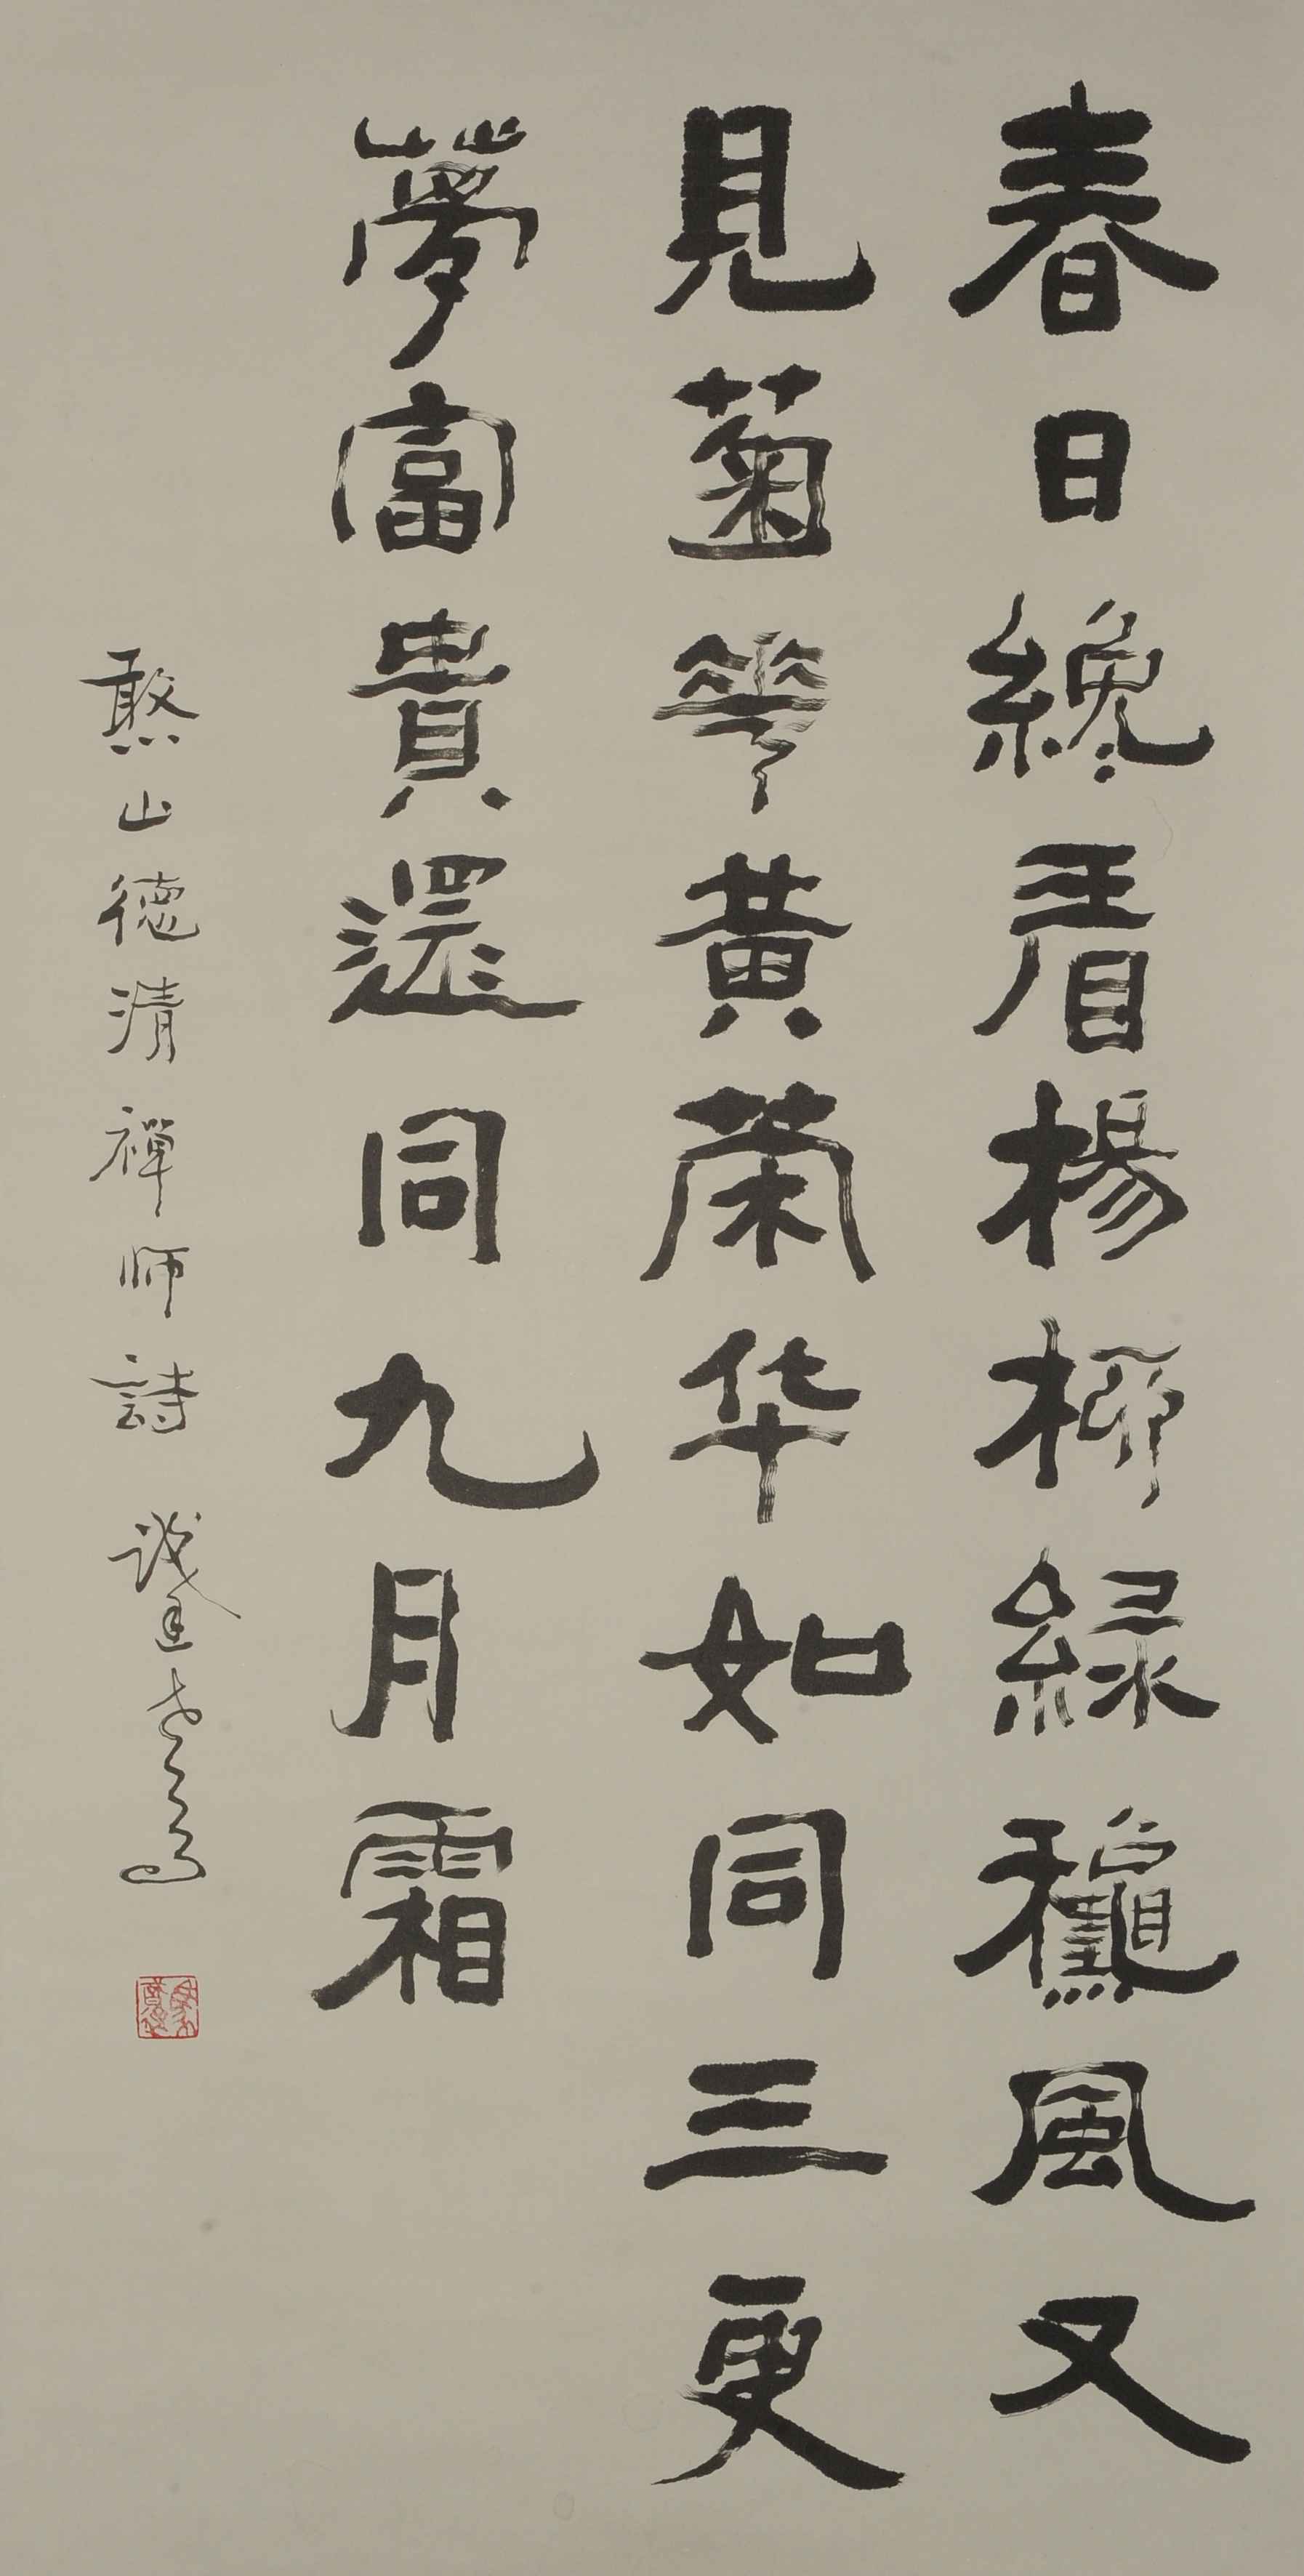 春日纔看楊柳緑龝風又
見菊花黃荣华如同三更
夢富貴還同九月霜
憨山德清禪師詩